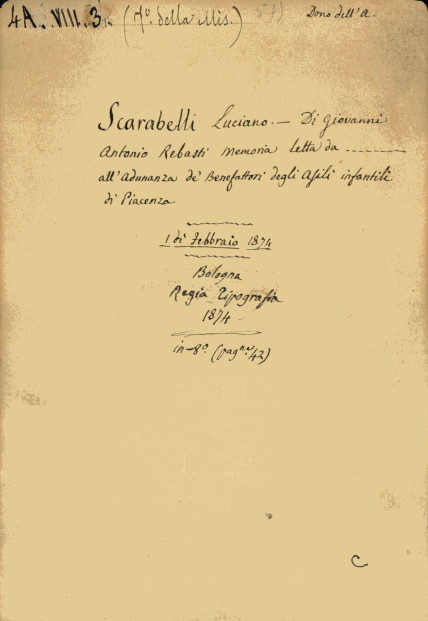 4A. VIII. 3. (7º. della Mis.) Dono dell'A.
Scarabelli Luciano. — Di Giovanni
Antonio Rebasti Memoria letta da ————
all'Adunanza de' Benefattori degli Asili infantili
di Piacenza
1 di Febbraio 1874
Bologna
Regia Tipografia
1874
in-8º. (pagne. 42)
C